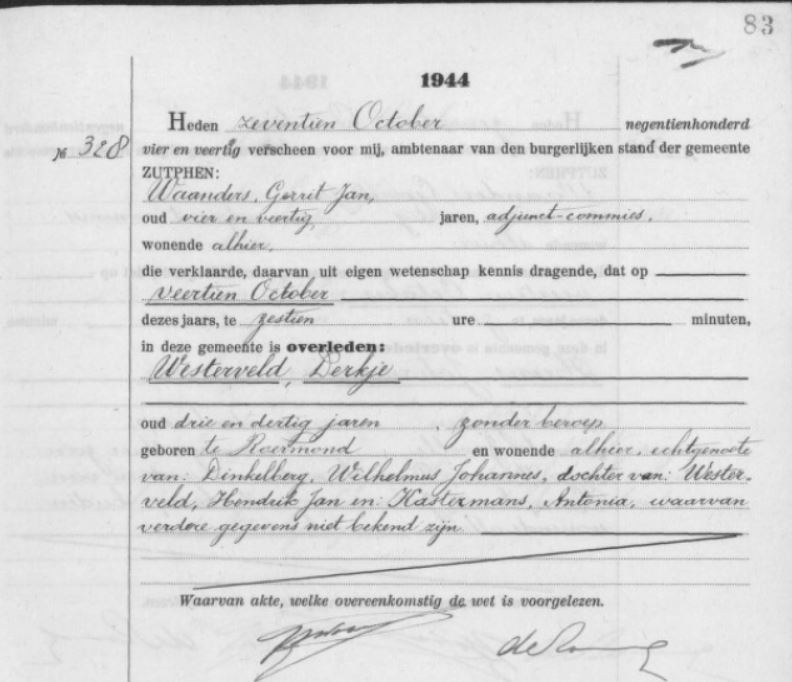 83
1944
Heden zeventien October negentienhonderd
№ 328 vier en veertig verscheen voor mij, ambtenaar van den burgerlijken stand der gemeente
ZUTPHEN:
Waanders, Gerrit Jan,
oud vier en veertig jaren, adjunct-commies,
wonende alhier,
die verklaarde, daarvan uit eigen wetenschap kennis dragende, dat op
veertien October
dezes jaars, te zestien ure minuten,
in deze gemeente is overleden:
Westerveld, Derkje
oud drie en dertig jaren, zonder beroep
geboren te Roermond en wonende alhier, echtgenoote
van: Dinkelberg, Wilhelmus Johannes, dochter van: Wester-
veld, Hendrik Jan en: Kastermans, Antonia, waarvan
verdere gegevens niet bekend zijn
Waarvan akte, welke overeenkomstig de wet is voorgelezen.